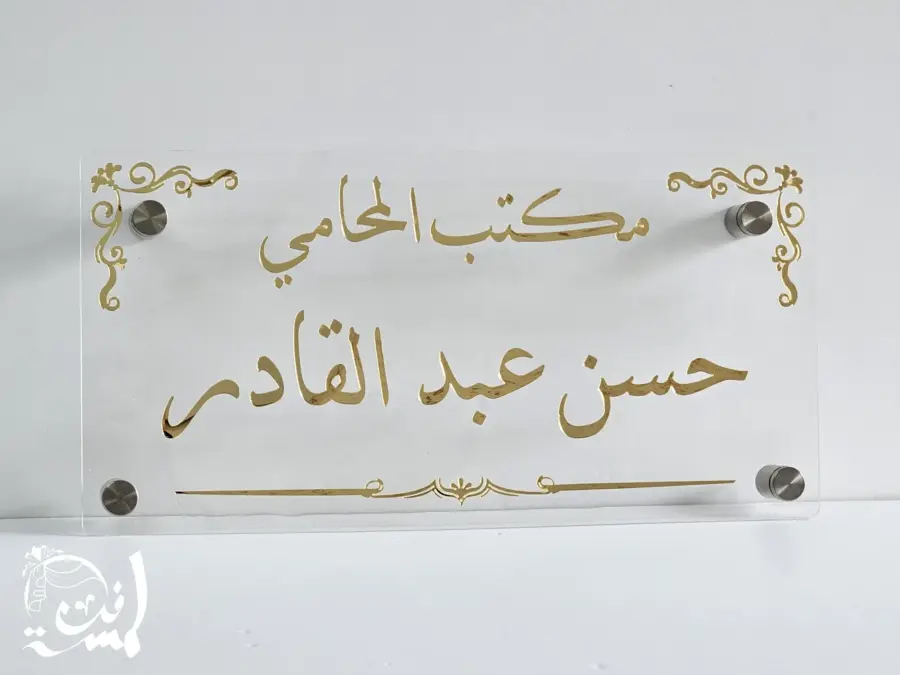 مكتب المحامي
حسن عبد القادر
لمسة فن